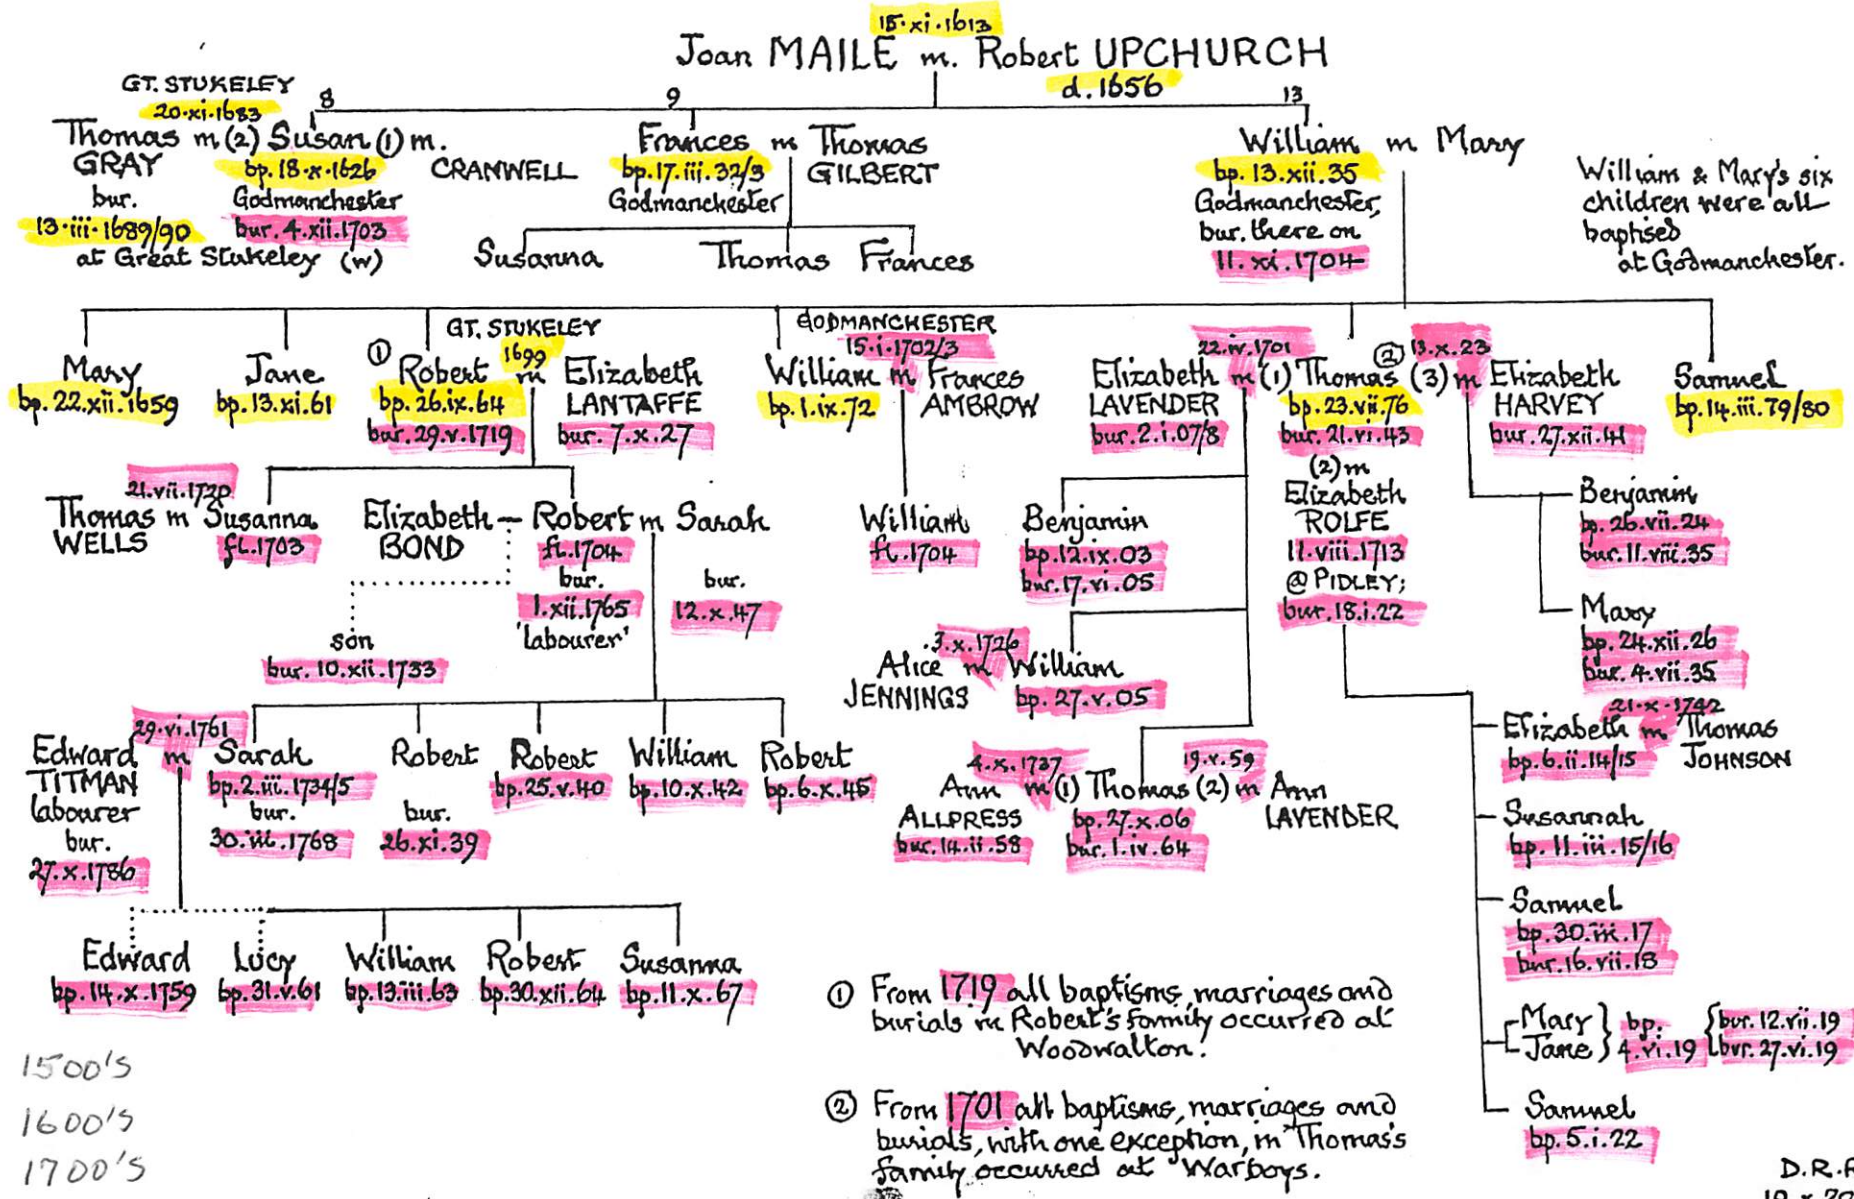 15.xi.1613
Joan MAILE m. Robert UPCHURCH
d.1656
8 9 13
GT. STUKELEY
20.xi.1683
Thomas m (2) Susan (1) m.
GRAY
bur.
13.iii.1689/90
at Great Stukeley (w)
bp. 18.x.1626
Godmanchester
bur. 4.xii.1703
CRANWELL
Frances m Thomas
GILBERT
bp. 17.iii.32/3
Godmanchester
Susanna Thomas Frances
William m Mary
bp. 13.xii.35
Godmanchester,
bur. there on
11.xi.1704
William & Mary's six
children were all
baptised
at Godmanchester.
Mary
bp. 22.xii.1659
Jane
bp. 13.xi.61
GT. STUKELEY
1699
① Robert m Elizabeth
LANTAFFE
bp. 26.ix.64
bur. 29.v.1719
bur. 7.x.27
GODMANCHESTER
15.i.1702/3
William m Frances
AMBROW
bp. 1.ix.72
22.iv.1701
Elizabeth m (1) Thomas (3) m Elizabeth
② 13.x.23
LAVENDER
bur. 2.i.07/8
bp. 23.vii.76
bur. 21.vi.43
HARVEY
bur. 27.xii.41
(2) m
Elizabeth
ROLFE
11.viii.1713
@ PIDLEY;
bur. 18.i.22
Samuel
bp. 14.iii.79/80
21.vii.1720
Thomas m Susanna
WELLS
fl. 1703
Elizabeth – Robert m Sarah
BOND
fl. 1704
bur.
1.xii.1765
'labourer'
bur.
12.x.47
son
bur. 10.xii.1733
William
fl. 1704
Benjamin
bp. 12.ix.03
bur. 17.vi.05
3.x.1726
Alice m William
JENNINGS
bp. 27.v.05
Benjamin
bp. 26.vii.24
bur. 11.viii.35
Mary
bp. 24.xii.26
bur. 4.vii.35
29.vi.1761
Edward m Sarah
TITMAN
labourer
bur.
27.x.1786
bp. 2.iii.1734/5
bur.
30.iii.1768
Robert
bur.
26.xi.39
Robert
bp. 25.v.40
William
bp. 10.x.42
Robert
bp. 6.x.45
4.x.1737 19.v.59
Ann m (1) Thomas (2) m Ann
ALLPRESS
bur. 14.ii.58
bp. 27.x.06
bur. 1.iv.64
LAVENDER
21.x.1742
Elizabeth m Thomas
JOHNSON
bp. 6.ii.14/15
Susannah
bp. 11.iii.15/16
Samuel
bp. 30.iii.17
bur. 16.vii.18
Mary } bp. { bur. 12.vii.19
Jane } 4.vi.19 { bur. 27.vi.19
Samuel
bp. 5.i.22
Edward
bp. 14.x.1759
Lucy
bp. 31.v.61
William
bp. 13.iii.63
Robert
bp. 30.xii.64
Susanna
bp. 11.x.67
① From 1719 all baptisms, marriages and
burials in Robert's family occurred at
Woodwalton.
② From 1701 all baptisms, marriages and
burials, with one exception, in Thomas's
family occurred at Warboys.
1500's
1600's
1700's
D.R.